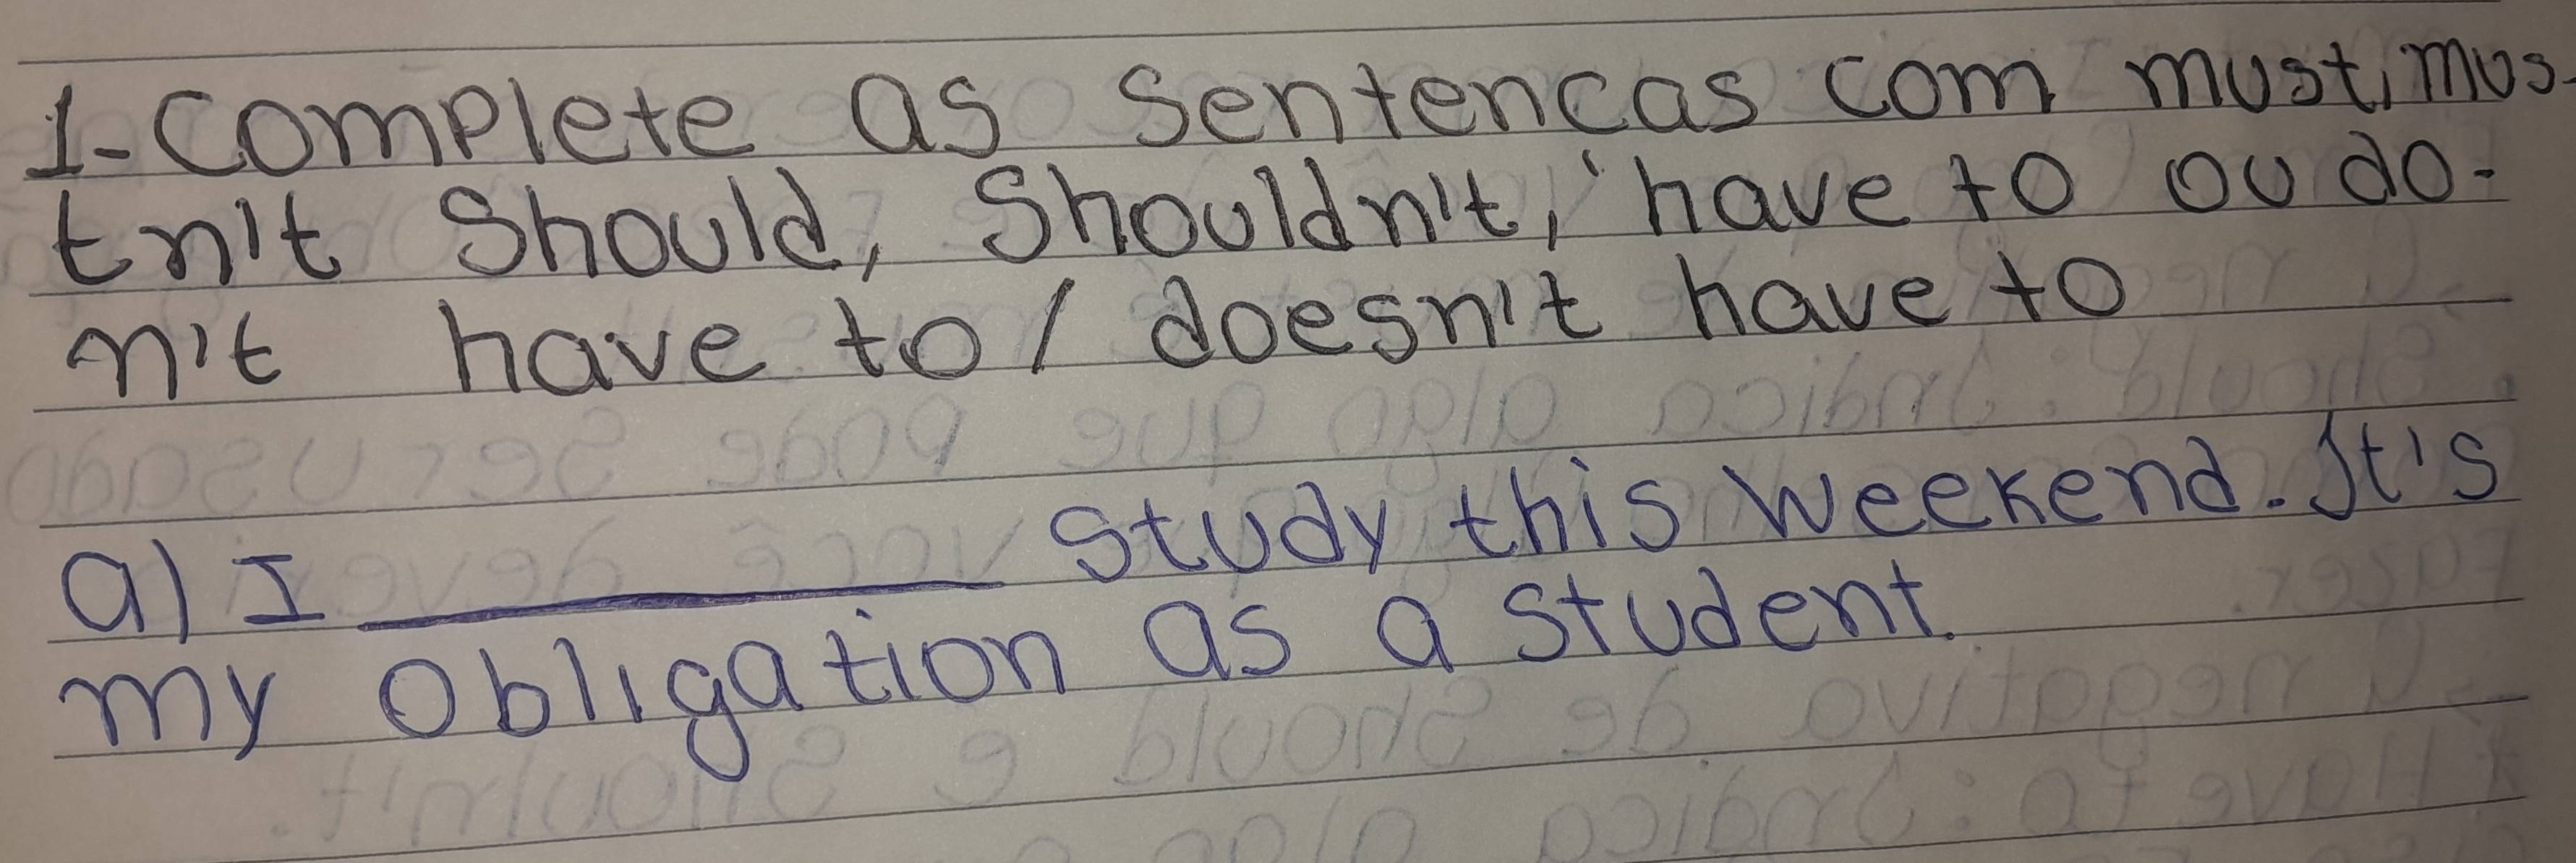 1-Complete as Sentencas com must, mus-
tn't Should, Shouldn't, have to ou do-
n't have to / doesn't have to
a) I __________ Study this weekend. It's
my obligation as a student.